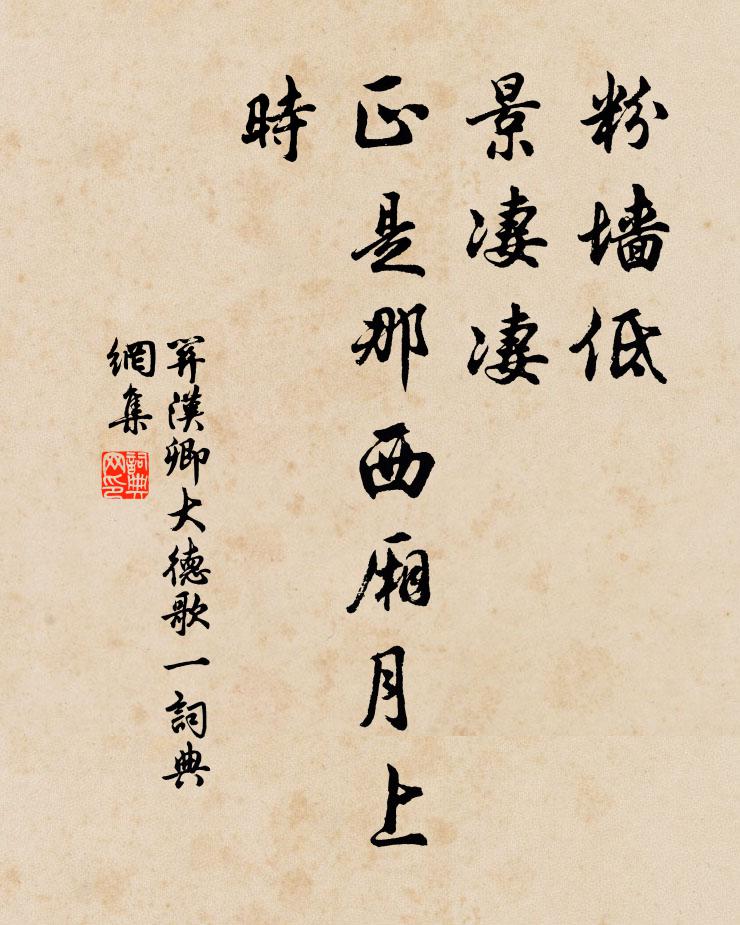 粉墙低
景凄凄
正是那西厢月上
時
關漢卿大德歌一詞典
網集
詞典
网印